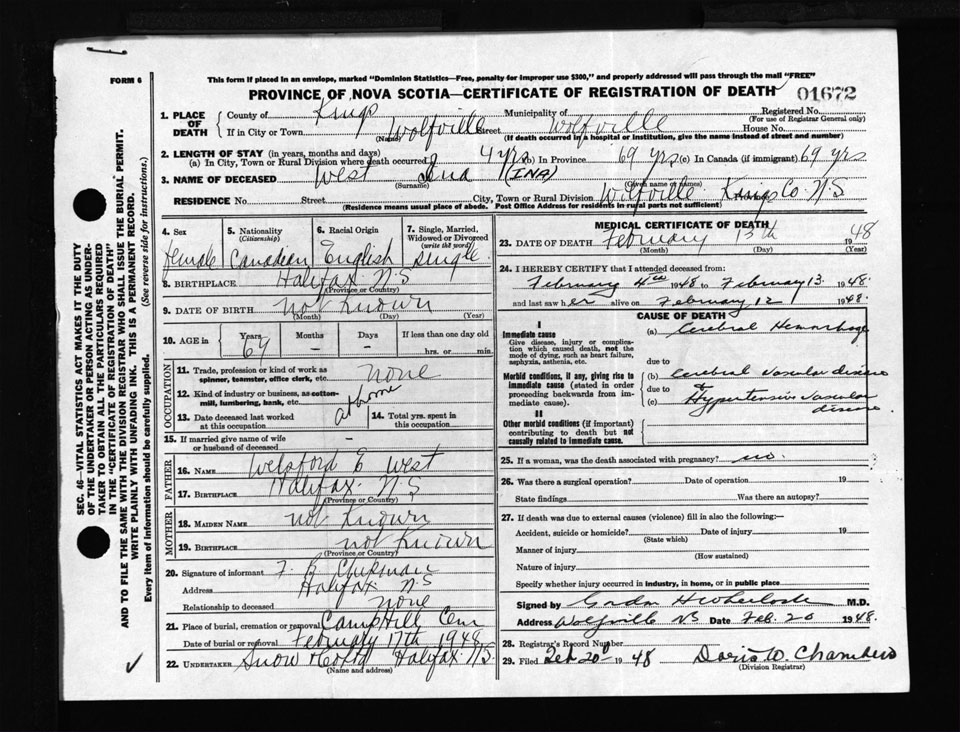 FORM 6
This form if placed in an envelope, marked "Dominion Statistics—Free, penalty for improper use $300," and properly addressed will pass through the mail "FREE"
PROVINCE OF NOVA SCOTIA—CERTIFICATE OF REGISTRATION OF DEATH
01672
SEC. 46—VITAL STATISTICS ACT MAKES IT THE DUTY
OF THE UNDERTAKER OR PERSON ACTING AS UNDER-
TAKER TO OBTAIN ALL THE PARTICULARS REQUIRED
IN THE "CERTIFICATE OF REGISTRATION OF DEATH"
AND TO FILE THE SAME WITH THE DIVISION REGISTRAR WHO SHALL ISSUE THE BURIAL PERMIT.
WRITE PLAINLY WITH UNFADING INK. THIS IS A PERMANENT RECORD.
Every item of information should be carefully supplied. (See reverse side for instructions.)
1. PLACE OF DEATH
County of Kings Municipality of Registered No.
(For use of Registrar General only)
If in City or Town Wolfville Street Wolfville House No.
(Name) (If death occurred in a hospital or institution, give the name instead of street and number)
2. LENGTH OF STAY (in years, months and days)
(a) In City, Town or Rural Division where death occurred 4 yrs (b) In Province 69 yrs (c) In Canada (if immigrant) 69 yrs
3. NAME OF DECEASED West Ina (INA)
(Surname) (Given name or names)
RESIDENCE No. Street City, Town or Rural Division Wolfville Kings Co. N.S
(Residence means usual place of abode. Post Office Address for residents in rural parts not sufficient)
4. Sex
Female
5. Nationality
(Citizenship)
Canadian
6. Racial Origin
English
7. Single, Married, Widowed or Divorced
(write the word)
single
8. BIRTHPLACE Halifax N.S
(Province or Country)
9. DATE OF BIRTH not known
(Month) (Day) (Year)
10. AGE in Years Months Days If less than one day old
69 – – hrs. or min.
OCCUPATION
11. Trade, profession or kind of work as
spinner, teamster, office clerk, etc. none
12. Kind of industry or business, as cotton-
mill, lumbering, bank, etc. at home
13. Date deceased last worked
at this occupation
14. Total yrs. spent in
this occupation
15. If married give name of wife
or husband of deceased –
FATHER
16. NAME Welsford E West
17. BIRTHPLACE Halifax N.S
(Province or Country)
MOTHER
18. MAIDEN NAME not known
19. BIRTHPLACE not known
(Province or Country)
20. Signature of informant F. B Chipman
Address Halifax N.S
Relationship to deceased none
21. Place of burial, cremation or removal Camp Hill Cem
Date of burial or removal February 17th 1948
22. UNDERTAKER Snow & Co Ltd Halifax N.S.
(Name and address)
MEDICAL CERTIFICATE OF DEATH
23. DATE OF DEATH February 13th 1948
(Month) (Day) (Year)
24. I HEREBY CERTIFY that I attended deceased from:
February 4th 1948 to February 13. 1948.
and last saw her alive on February 12 1948.
CAUSE OF DEATH
I
Immediate cause
Give disease, injury or complica-
tion which caused death, not the
mode of dying, such as heart failure,
asphyxia, asthenia, etc.
(a) Cerebral Hemorrhage
due to
Morbid conditions, if any, giving rise to
immediate cause (stated in order
proceeding backwards from im-
mediate cause).
(b) Cerebral Vascular disease
due to &
(c) Hypertensive Vascular
disease.
II
Other morbid conditions (if important)
contributing to death but not
causally related to immediate cause.
25. If a woman, was the death associated with pregnancy? no.
26. Was there a surgical operation? Date of operation 19
State findings Was there an autopsy?
27. If death was due to external causes (violence) fill in also the following:—
Accident, suicide or homicide? Date of injury 19
(State which)
Manner of injury
(How sustained)
Nature of injury
Specify whether injury occurred in industry, in home, or in public place
Signed by Gordon H Wheelock M.D.
Address Wolfville NS Date Feb. 20 1948.
28. Registrar's Record Number
29. Filed Feb 20 1948 Doris W. Chambers
(Division Registrar)